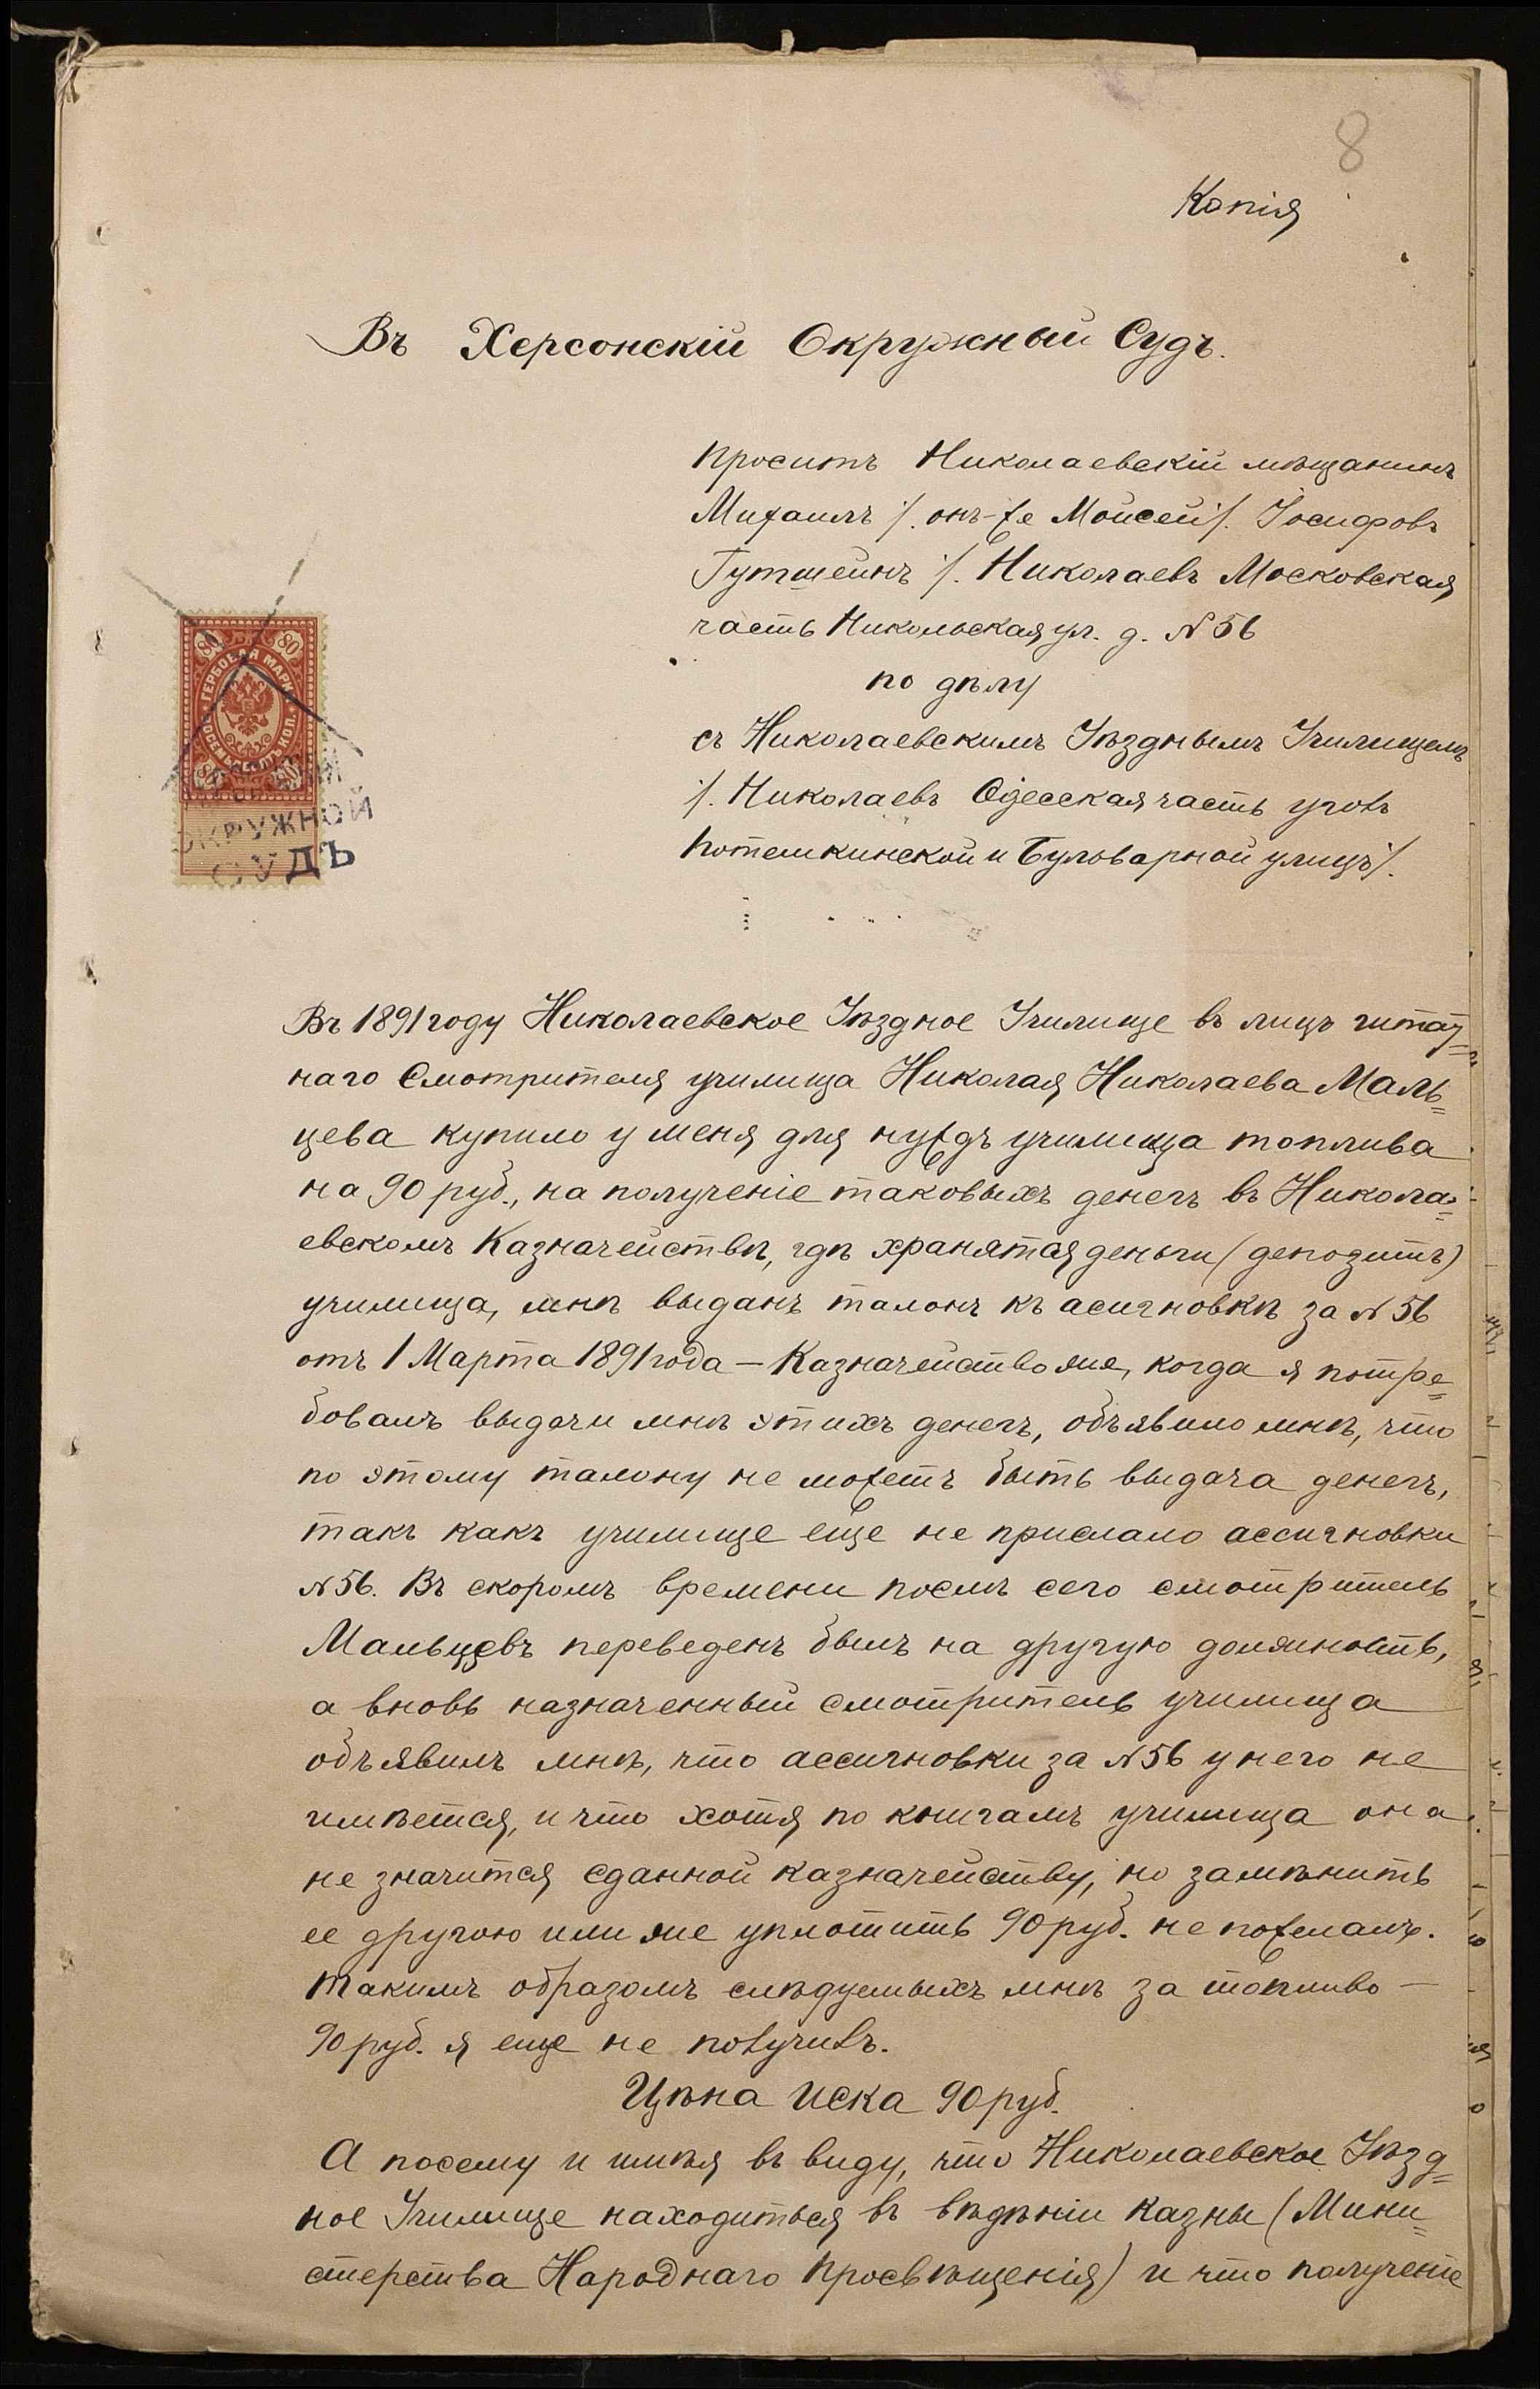 8
Копія
Въ Херсонскій Окружный Судъ.
проситъ Николаевскій мѣщанинъ
Михаилъ /. онъ-же Мойсей/. Іосифовъ
Гутшейнъ /. Николаевъ Московская
часть Никольская ул. д. N 56
по дѣлу
съ Николаевскимъ Уѣзднымъ Училищемъ
/. Николаевъ Одесская часть уголъ
Потемкинской и Бульварной улицъ/.
80 80
ГЕРБОВАЯ МАРКА
ВОСЕМЬДЕСЯТЪ КОП.
80 80
ОКРУЖНОЙ
СУДЪ
Въ 1891 году Николаевское Уѣздное Училище въ лицѣ штат=
наго Смотрителя училища Николая Николаева Маль=
цева купило у меня для нуждъ училища топлива
на 90 руб., на полученіе таковыхъ денегъ въ Никола=
евскомъ Казначействѣ, гдѣ хранятся деньги (депозитъ)
училища, мнѣ выданъ талонъ къ асигновкѣ за N 56
отъ 1 Марта 1891 года – Казначейство же, когда я потре=
бовалъ выдачи мнѣ этихъ денегъ, объявило мнѣ, что
по этому талону не можетъ быть выдача денегъ,
такъ какъ училище еще не прислало ассигновки
N 56. Въ скоромъ времени послѣ сего смотритель
Мальцевъ переведенъ былъ на другую должность,
а вновь назначенный смотритель училища
объявилъ мнѣ, что ассигновки за N 56 у него не
имѣется, и что хотя по книгамъ училища она
не значится сданной казначейству, но замѣнить
ее другою или же уплотить 90 руб. не пожелалъ.
Такимъ образомъ слѣдуемыхъ мнѣ за топливо –
90 руб. я еще не получилъ.
Цѣна иска 90 руб.
А посему и имѣя въ виду, что Николаевское Уѣзд=
ное Училище находиться въ вѣдѣніи казны (Мини=
стерства Народнаго Просвѣщенія) и что полученіе